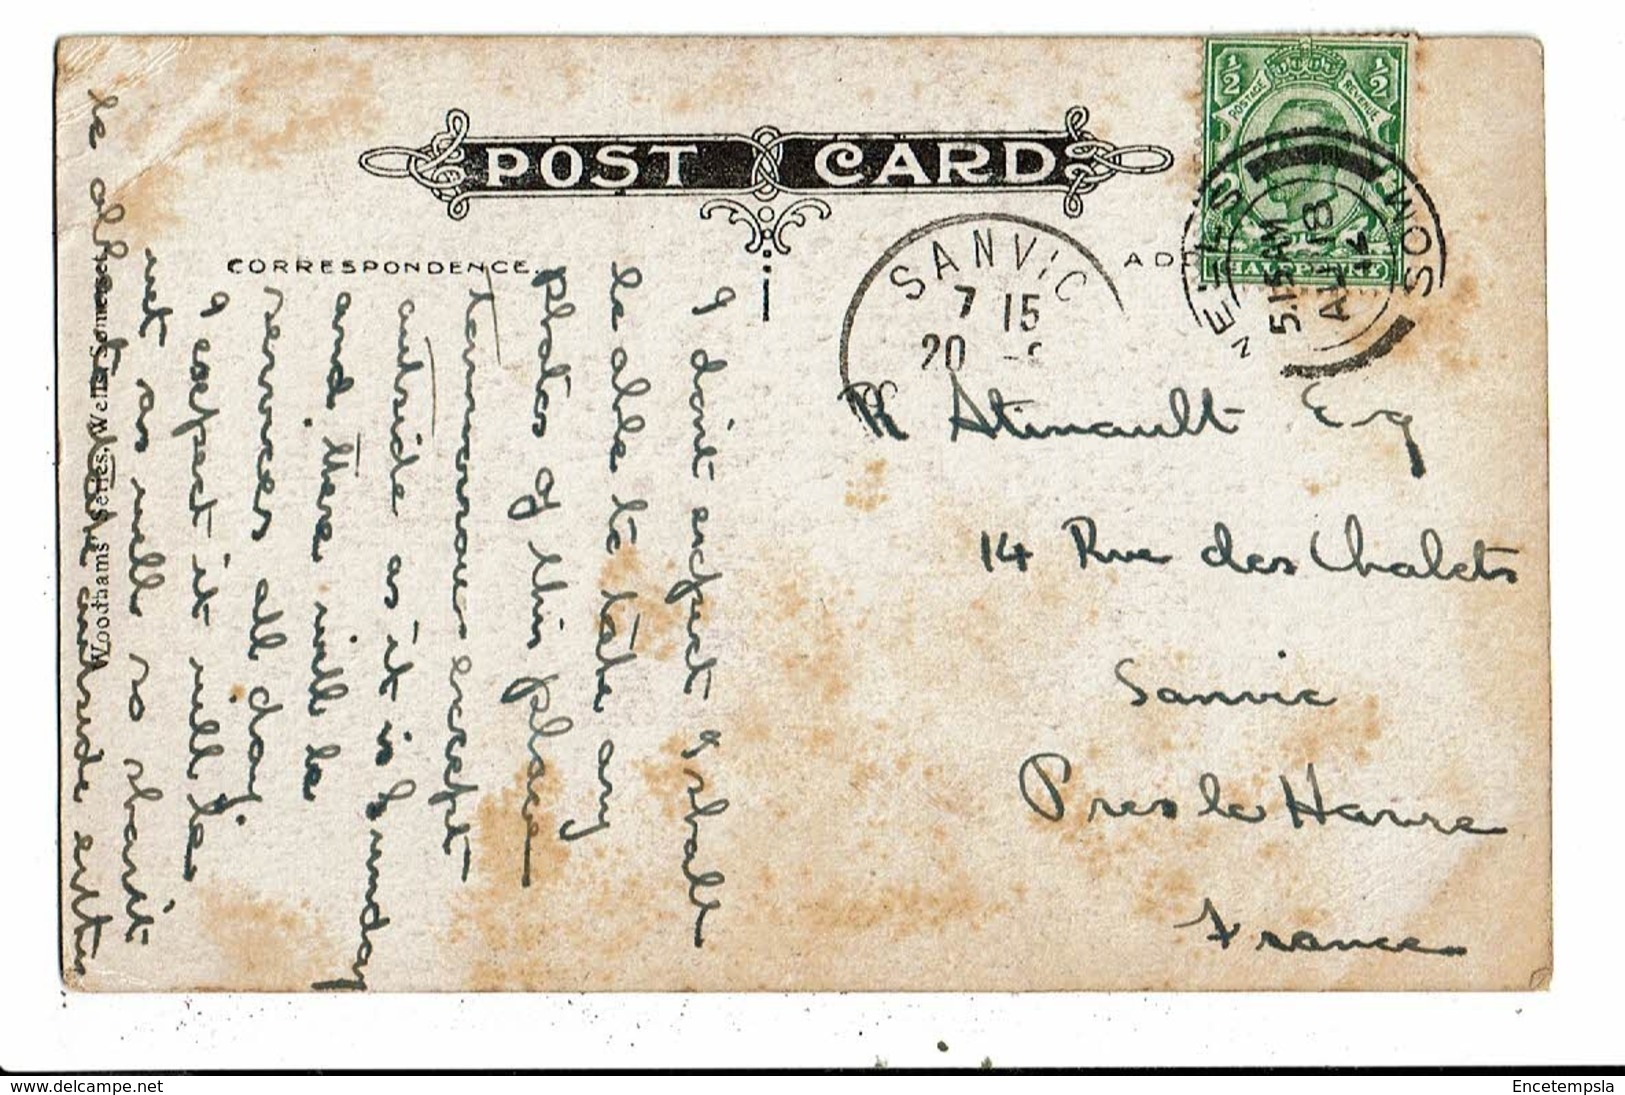 POST CARD
CORRESPONDENCE.
I don't expect I shall
be able to take any
photos of this place
tomorrow except
outside as it is Sunday
and there will be
services all day.
I expect it will be
wet as well so shan't
be able to take outside either
Woodhams' Series, Wells, Somerset
½ ½
POSTAGE REVENUE
HALFPENNY
WELLS SOM
5.15 AM
AU 18
SANVIC
7 15
20
R Atinault Esq
14 Rue des Chalets
Sanvic
Pres le Havre
France
www.delcampe.net
Encetempsla